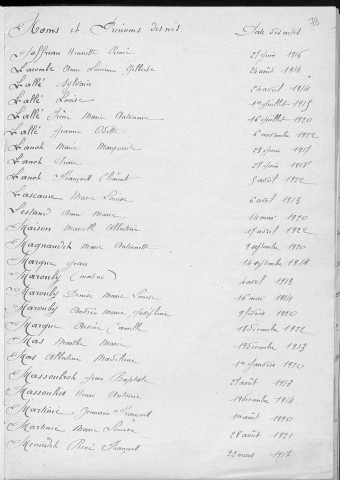 78
Noms et Prénoms des nés Date des actes
Joffrean Henriette René 25 juin 1916
Lacombe Anne Lucienne Gilberte 24 août 1914
Lallé Sylvain 24 avril 1914
Lallé Louise 1er juillet 1915
Lallé Irène Marie Antoinette 16 juillet 1920
Lallé Jeanne Odette 6 novembre 1922
Lanoh Marie Marguerite 23 juin 1913
Lanoh 27 juin 1918
Lanoh François Clément 5 avril 1922
Lascaux Marie Louise 6 avril 1913
Lestand Anne Marie 14 mai 1920
Maison Marcelle Albertine 17 avril 1922
Magnaudeh Marie Antoinette 9 septembre 1920
Marque Jean 14 septembre 1914
Marouby 4 avril 1913
Marouby Denise Marie Louise 16 mai 1914
Marouby Andrée Marie Joséphine 9 février 1920
Marque Camille 18 Décembre 1922
Mas Marthe Marie 19 Décembre 1913
Mas Albertine Madeleine 1er janvier 1920
Massoubreh Jean Baptiste 27 août 1913
Massoubreh Henri Antonin 19 Décembre 1914
Martinie Germain François 1er août 1920
Martinie Marie Louise 28 août 1921
Meundeh René François 22 mars 1917